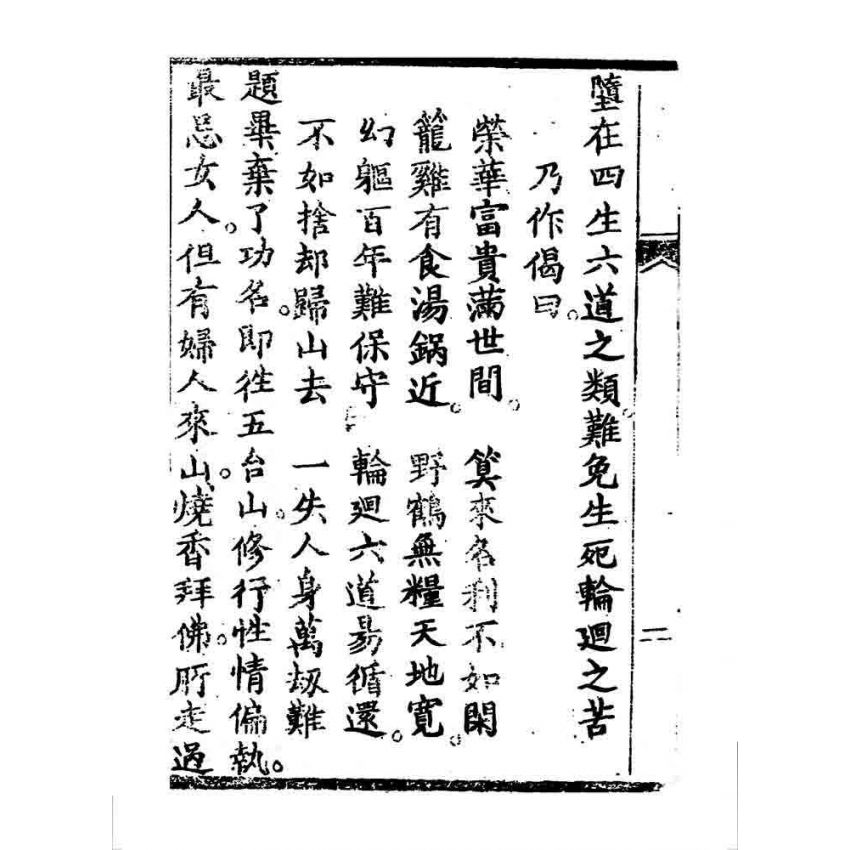 墮在四生六道之類難免生死輪廻之苦
乃作偈曰。
榮華富貴滿世間。 筭來名利不如閑
籠雞有食湯鍋近。 野鶴無糧天地寬。
幻軀百年難保守 輪廻六道易循還。
不如捨却歸山去 一失人身萬劫難
題畢棄了功名。即徃五台山。修行性情偏執。
最忌女人。但有婦人來山。燒香拜佛。所走過
二